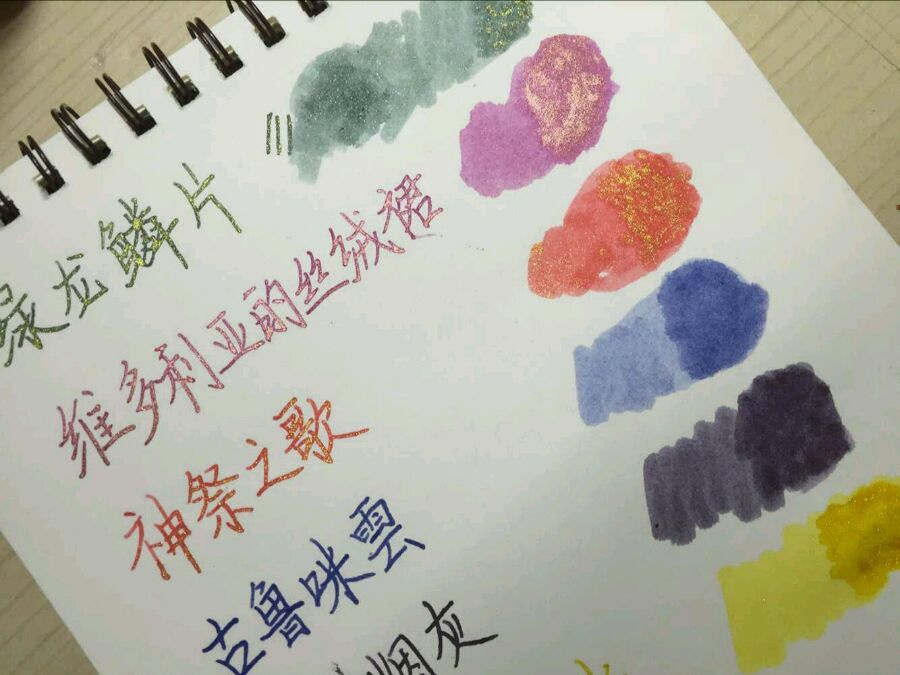 暴龙鳞片
维多利亚的丝绒裙
神祭之歌
古鲁咪雲
烟灰